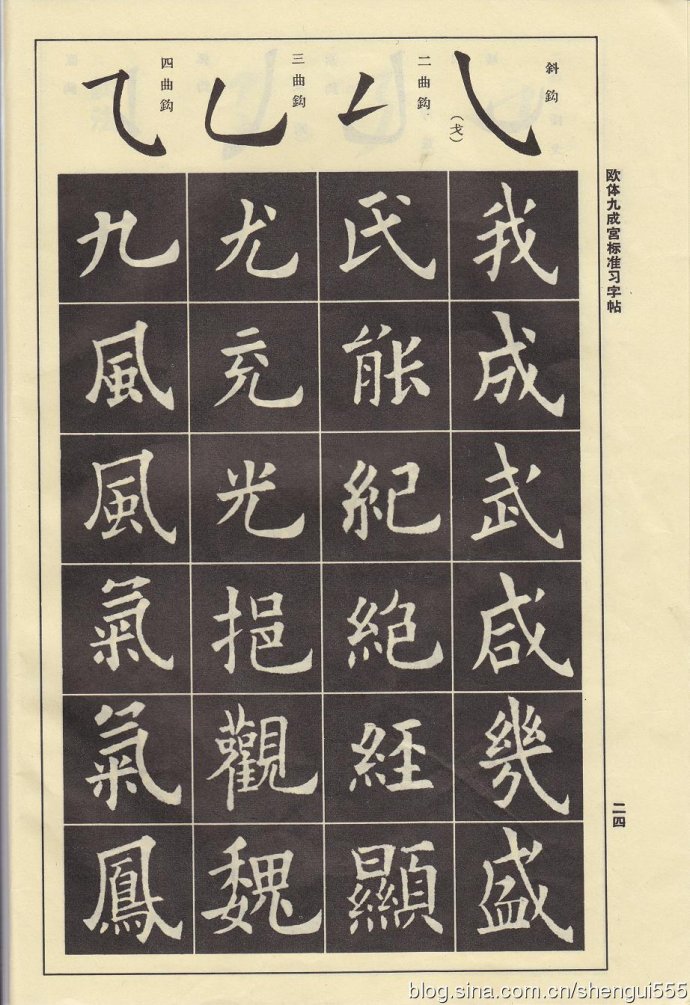 欧体九成宫标准习字帖
二四
斜鈎
(戈)
二曲鈎
三曲鈎
四曲鈎
我成武咸幾盛
氏能紀絕經顯
尤充光挹觀魏
九風風氣氣鳳
blog.sina.com.cn/shengui555